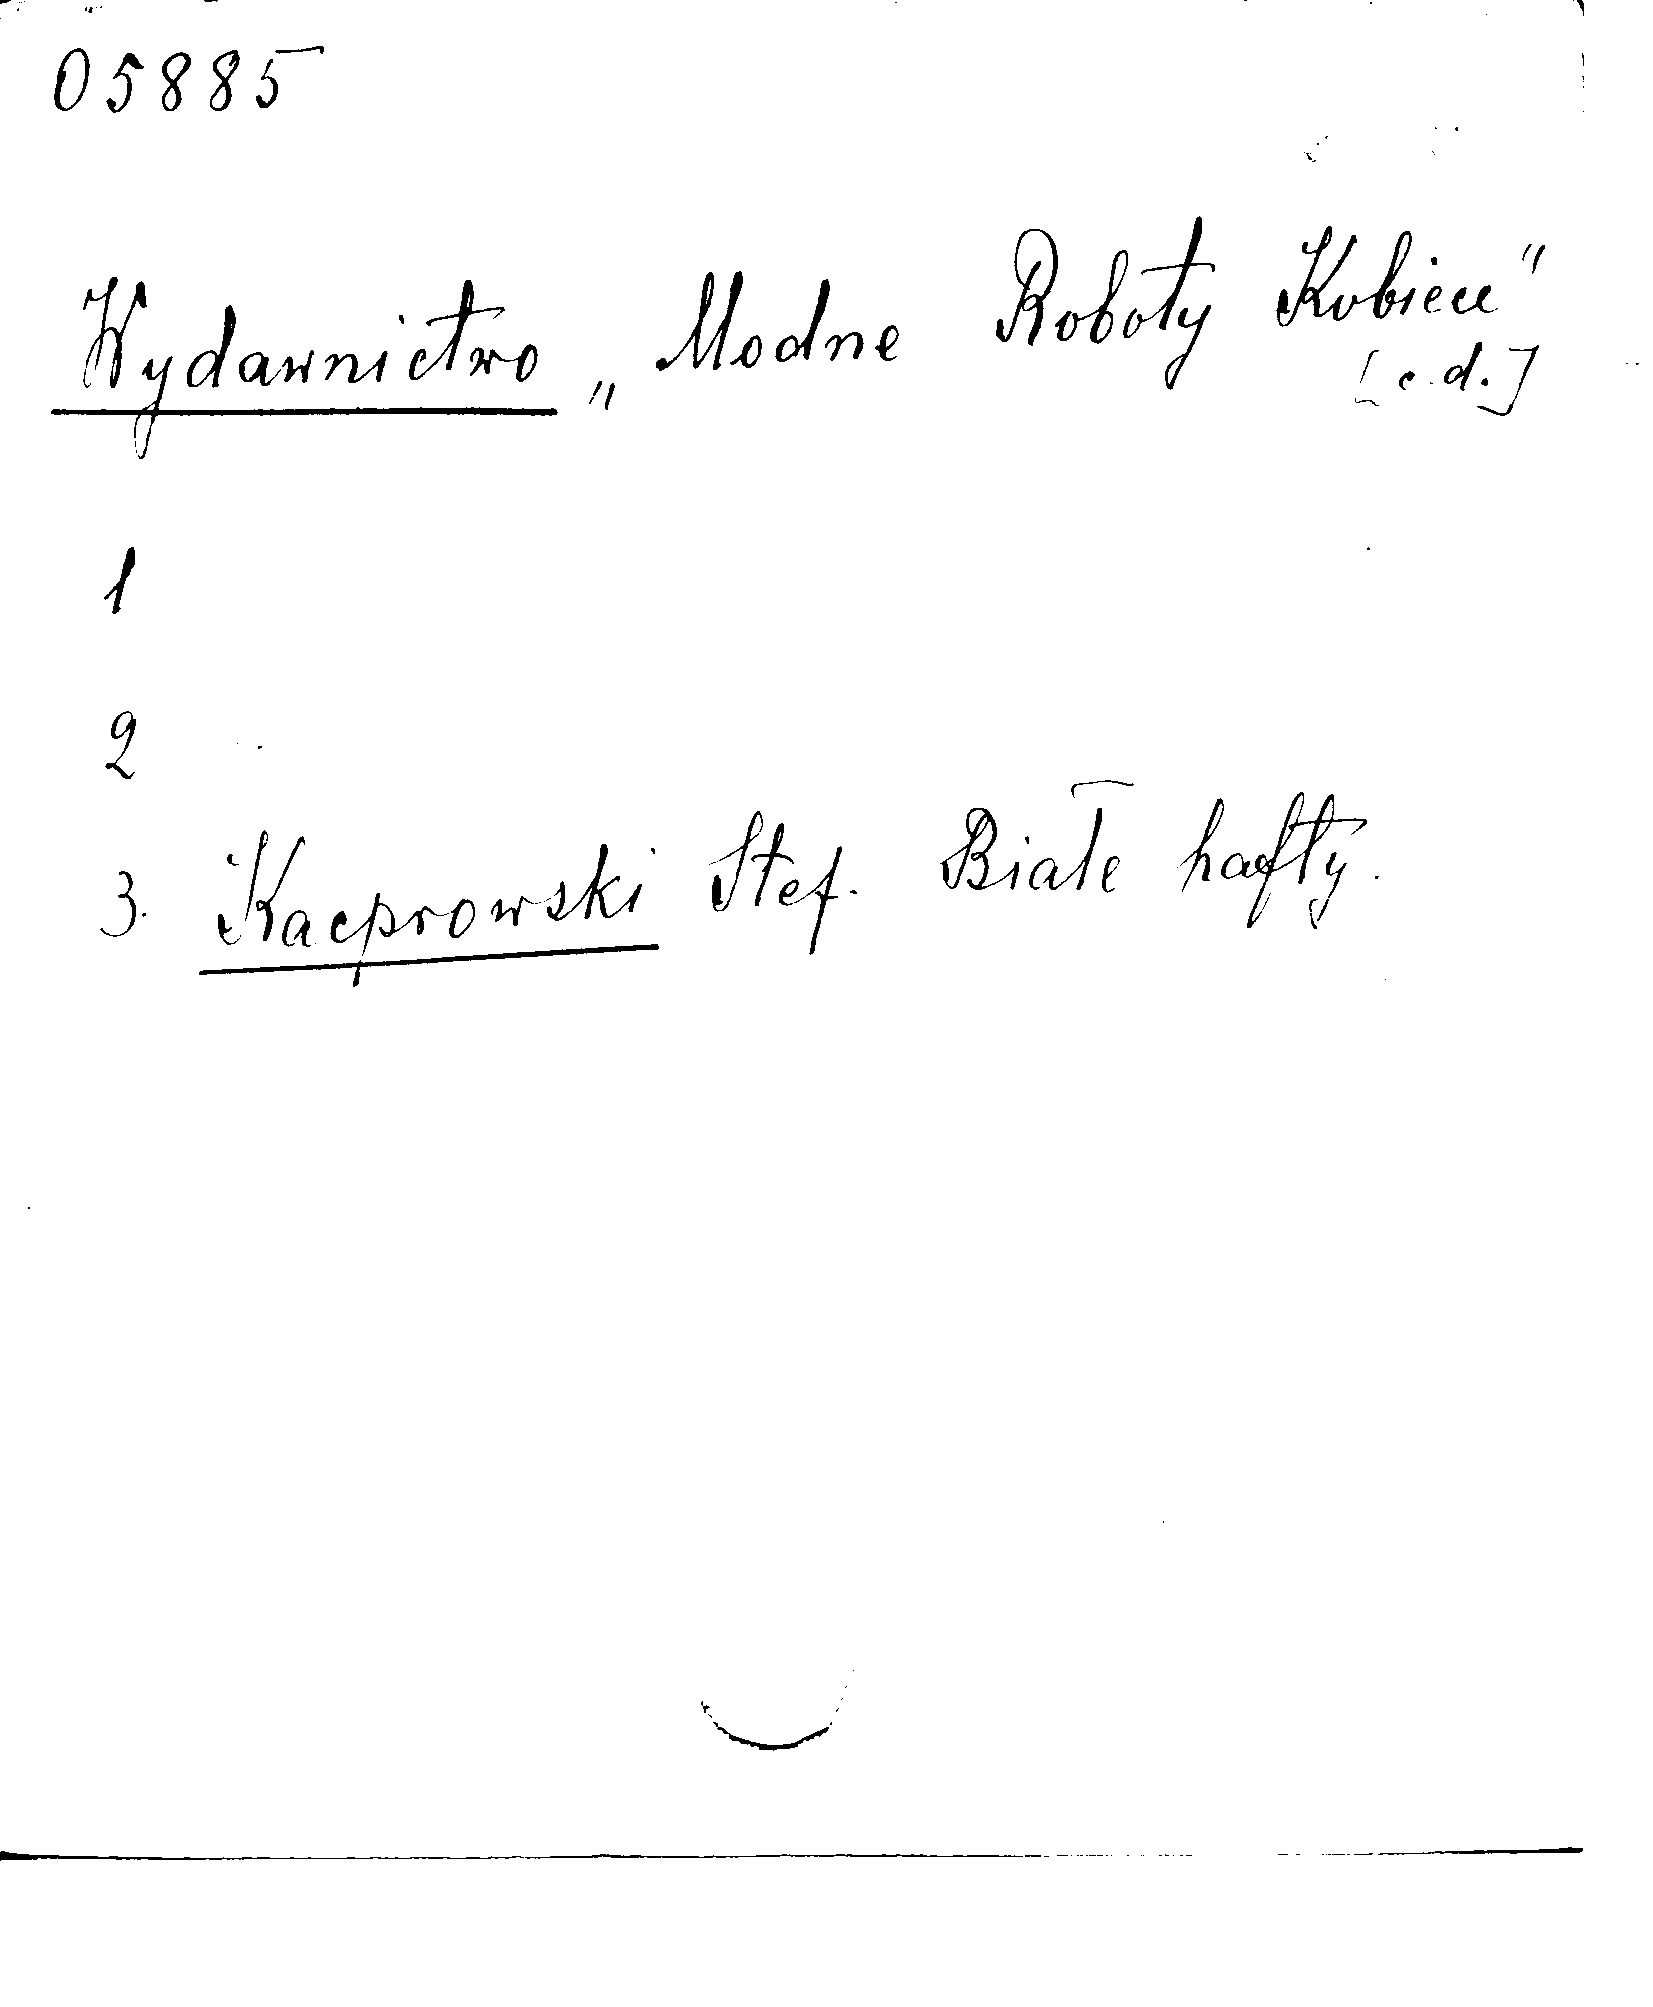 05885
Wydawnictwo „Modne Roboty Kobiece"
[c.d.]
1
2
3. Kacprowski Stef. Białe hafty.